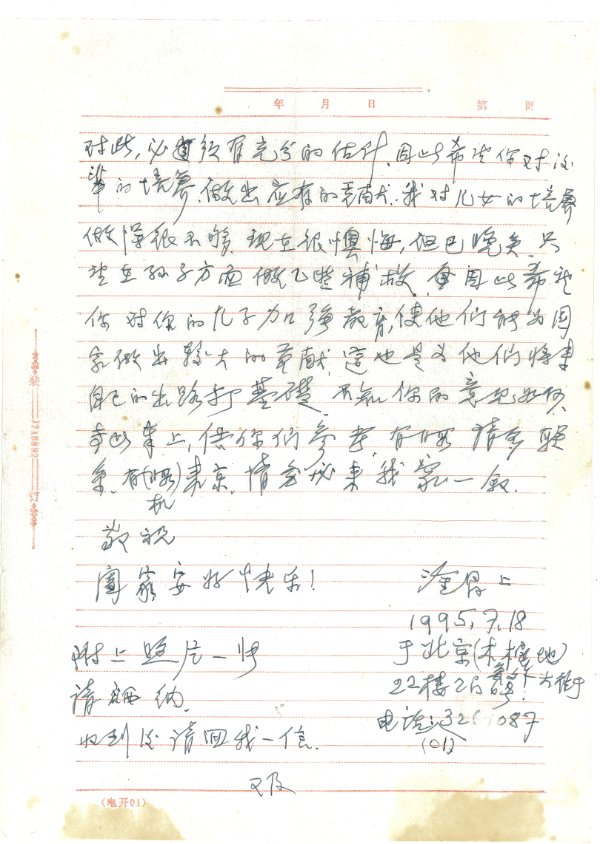 年 月 日 第 页
对此,必须有充分的估计.因此希望你对后
辈的培养.做出应有的贡献.我对儿女的培养
做得很不够.现在很懊悔,但已晚矣.只
望在孙子方面做了些补救.因此希望
你对你的儿子加强教育,使他们能为国
家做出较大的贡献.这也是为他们将来
自己的出路打基礎.不知你的意见如何,
李此奉上,供你们参考,有暇请多联
系.有机(暇)来京,请务必来我家一叙.
敬祝
阖家安好快乐!
上
1995,7.18
附上照片一张 于北京(木樨地)
请 纳. 22楼26号 大街
收到后请回我一信. 电话:
(01)
又及
(电开01)
装 订